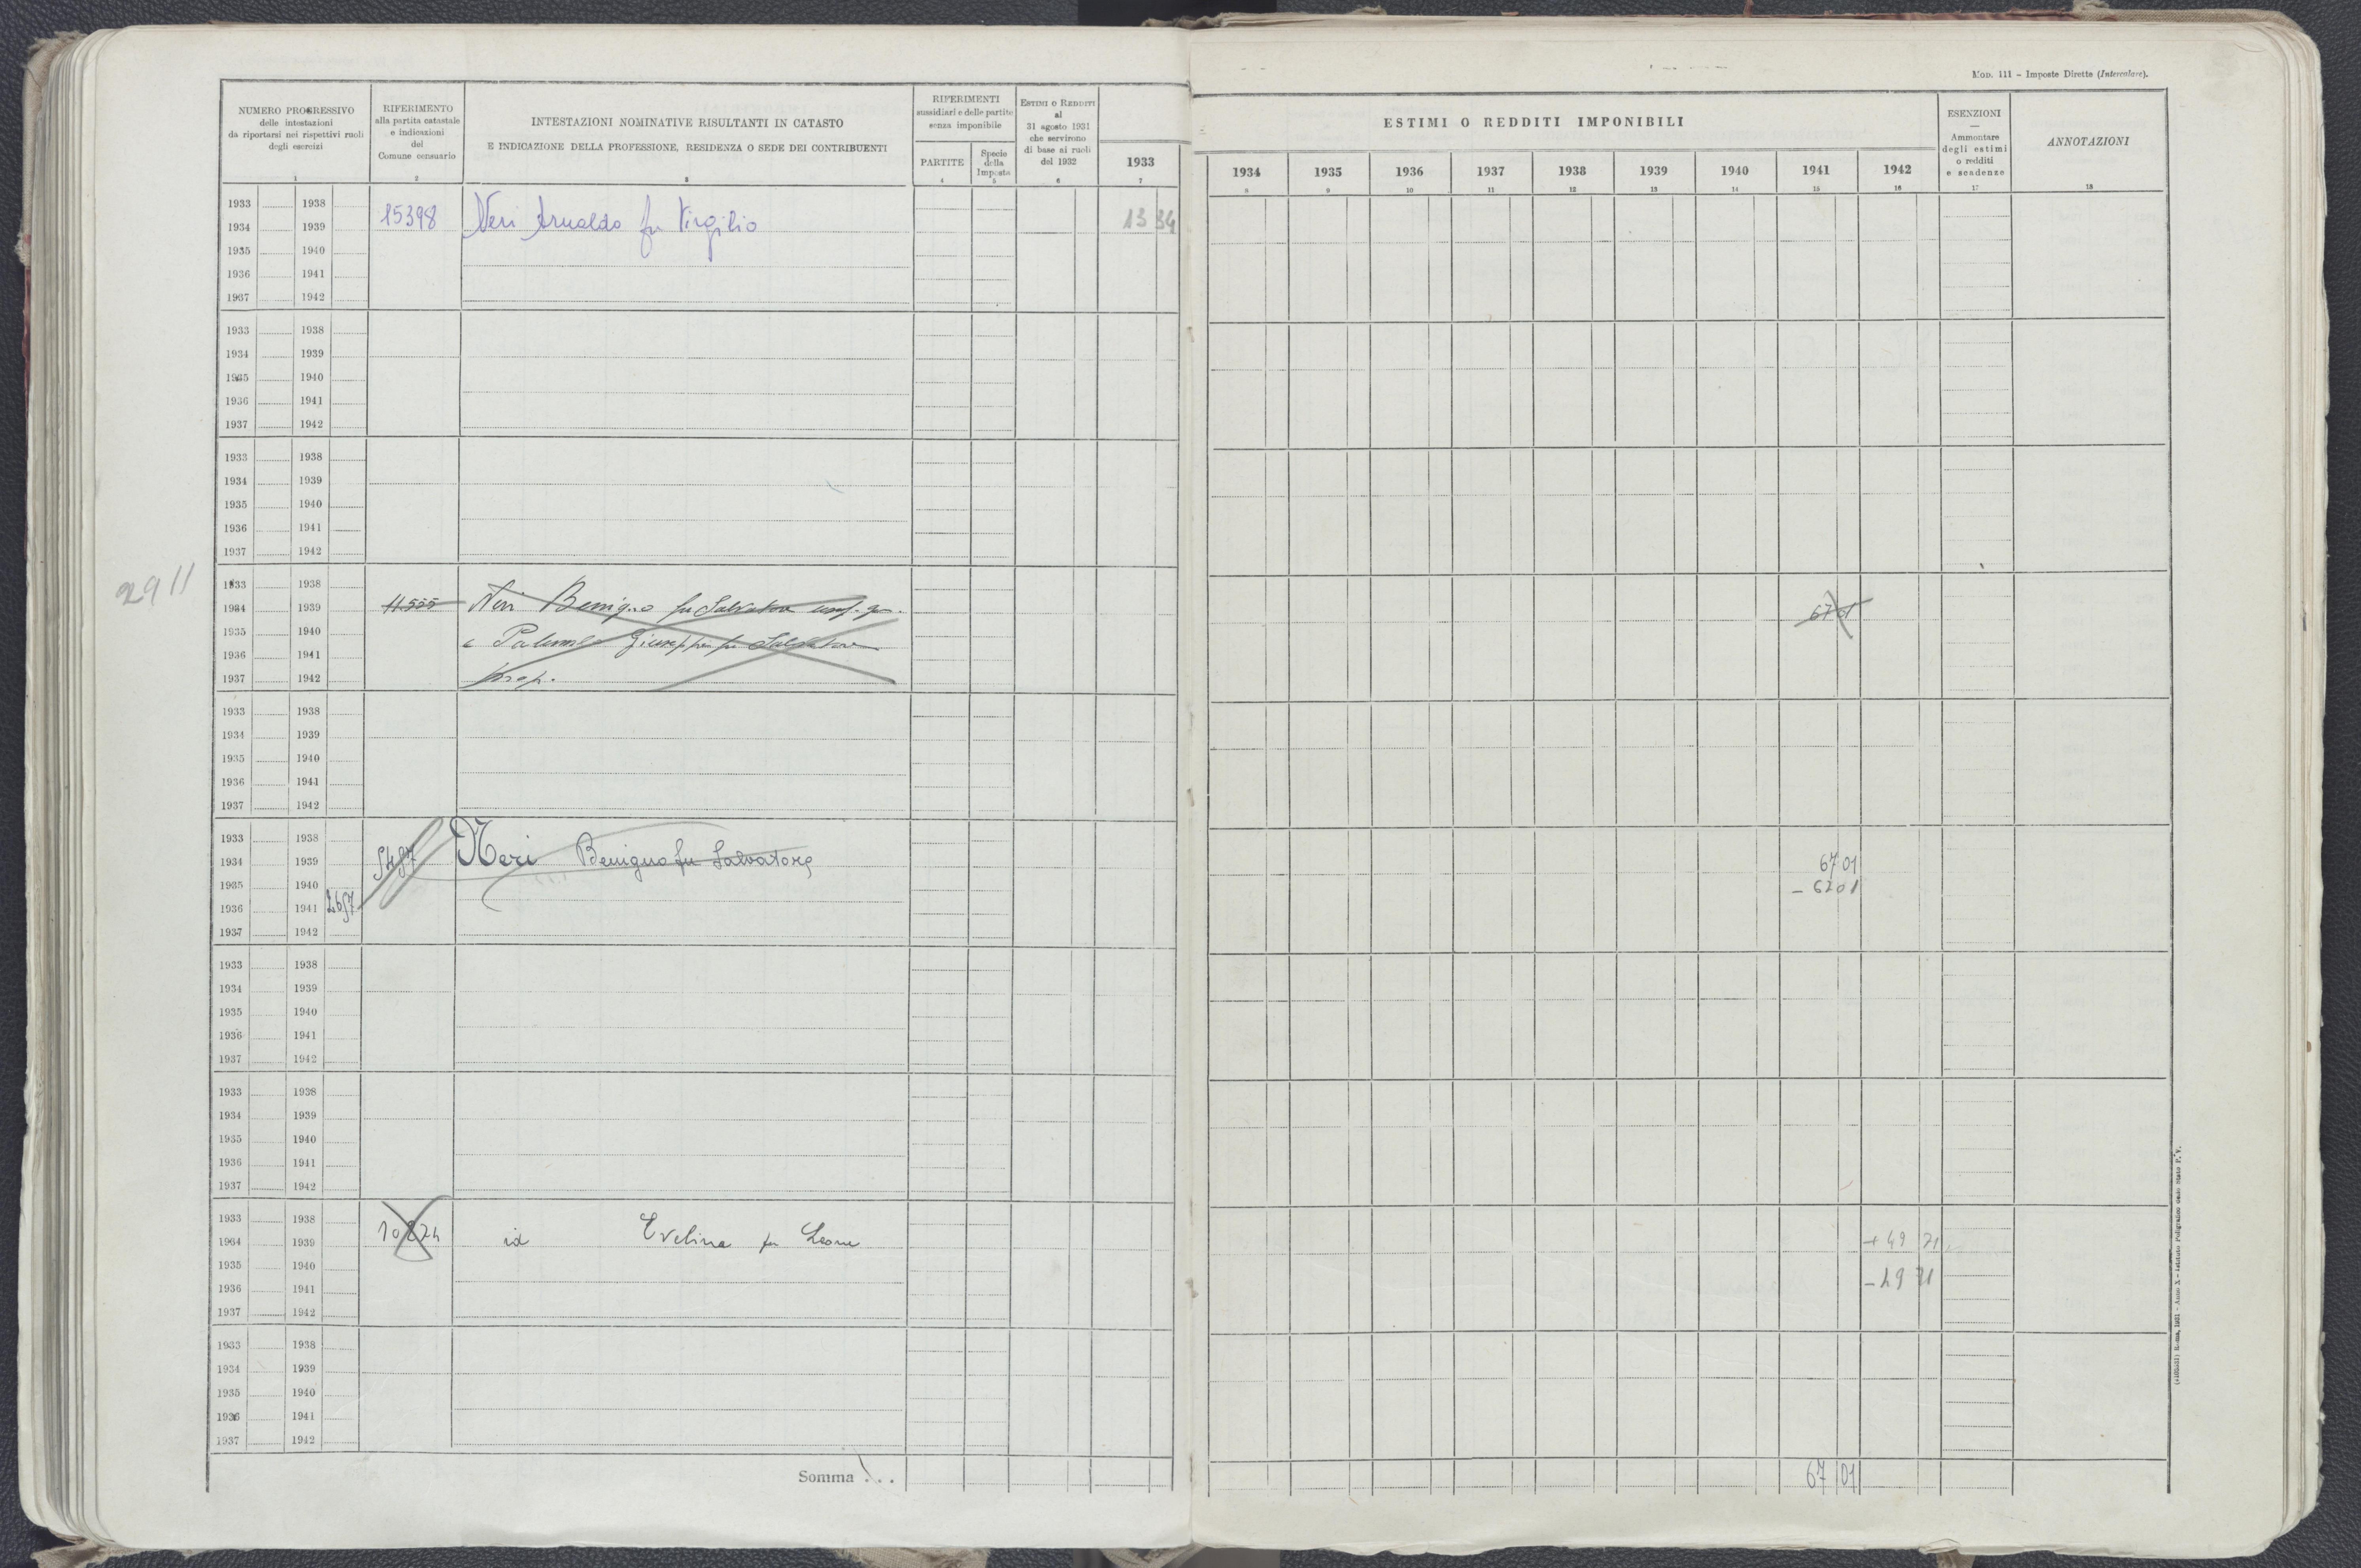 MOD. 111 – Imposte Dirette (Intercalare).
NUMERO PROGRESSIVO
delle intestazioni
da riportarsi nei rispettivi ruoli
degli esercizi
1
RIFERIMENTO
alla partita catastale
e indicazioni
del
Comune censuario
2
INTESTAZIONI NOMINATIVE RISULTANTI IN CATASTO
E INDICAZIONE DELLA PROFESSIONE, RESIDENZA O SEDE DEI CONTRIBUENTI
3
RIFERIMENTI
sussidiari e delle partite
senza imponibile
PARTITE
4
Specie
della
Imposta
5
ESTIMI O REDDITI
al
31 agosto 1931
che servirono
di base ai ruoli
del 1932
6
ESTIMI O REDDITI IMPONIBILI
1933 1934 1935 1936 1937 1938 1939 1940 1941 1942
7 8 9 10 11 12 13 14 15 16
ESENZIONI
—
Ammontare
degli estimi
o redditi
e scadenze
17
ANNOTAZIONI
18
1933 1938
15398 Neri Arnaldo fu Virgilio 13 34
1934 1939
1935 1940
1936 1941
1937 1942
1933 1938
1934 1939
1935 1940
1936 1941
1937 1942
1933 1938
1934 1939
1935 1940
1936 1941
1937 1942
2911
1933 1938
1934 1939
11555 Neri Benigno fu Salvatore usuf. 67 01
1935 1940
e Palumbo Giuseppe fu Salvatore
1936 1941
1937 1942
prop.
1933 1938
1934 1939
1935 1940
1936 1941
1937 1942
1933 1938
1934 1939
Neri Benigno fu Salvatore 67 01
1935 1940
– 67 01
1936 1941 2657
1937 1942
1933 1938
1934 1939
1935 1940
1936 1941
1937 1942
1933 1938
1934 1939
1935 1940
1936 1941
1937 1942
1933 1938
1934 1939
id Evelina fu Leone + 49 71
1935 1940
– 49 71
1936 1941
1937 1942
1933 1938
1934 1939
1935 1940
1936 1941
1937 1942
Somma . . . 67 01